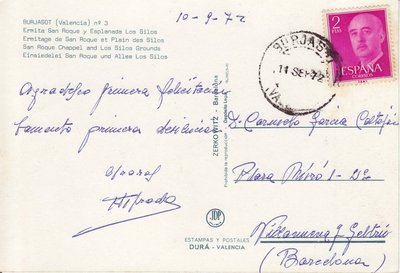 BURJASOT (Valencia) nº 3
Ermita San Roque y Esplanada Los Silos
Ermitage de San Roque et Plain des Silos
San Roque Chappel and Los Silos Grounds
Einsiedelei San Roque und Allee Los Silos
10-9-72
BURJASOT
11 SEP 72
2
PTAS
ESPAÑA
CORREOS
primera felicitacion
primera
ZERKOWITZ - Barcelona
Prohibida la reproducción
D. Carmelo Garcia
Plaza Miró 1-2º
Villanueva y Geltrú
(Barcelona)
JDP
ESTAMPAS Y POSTALES
DURÁ - VALENCIA